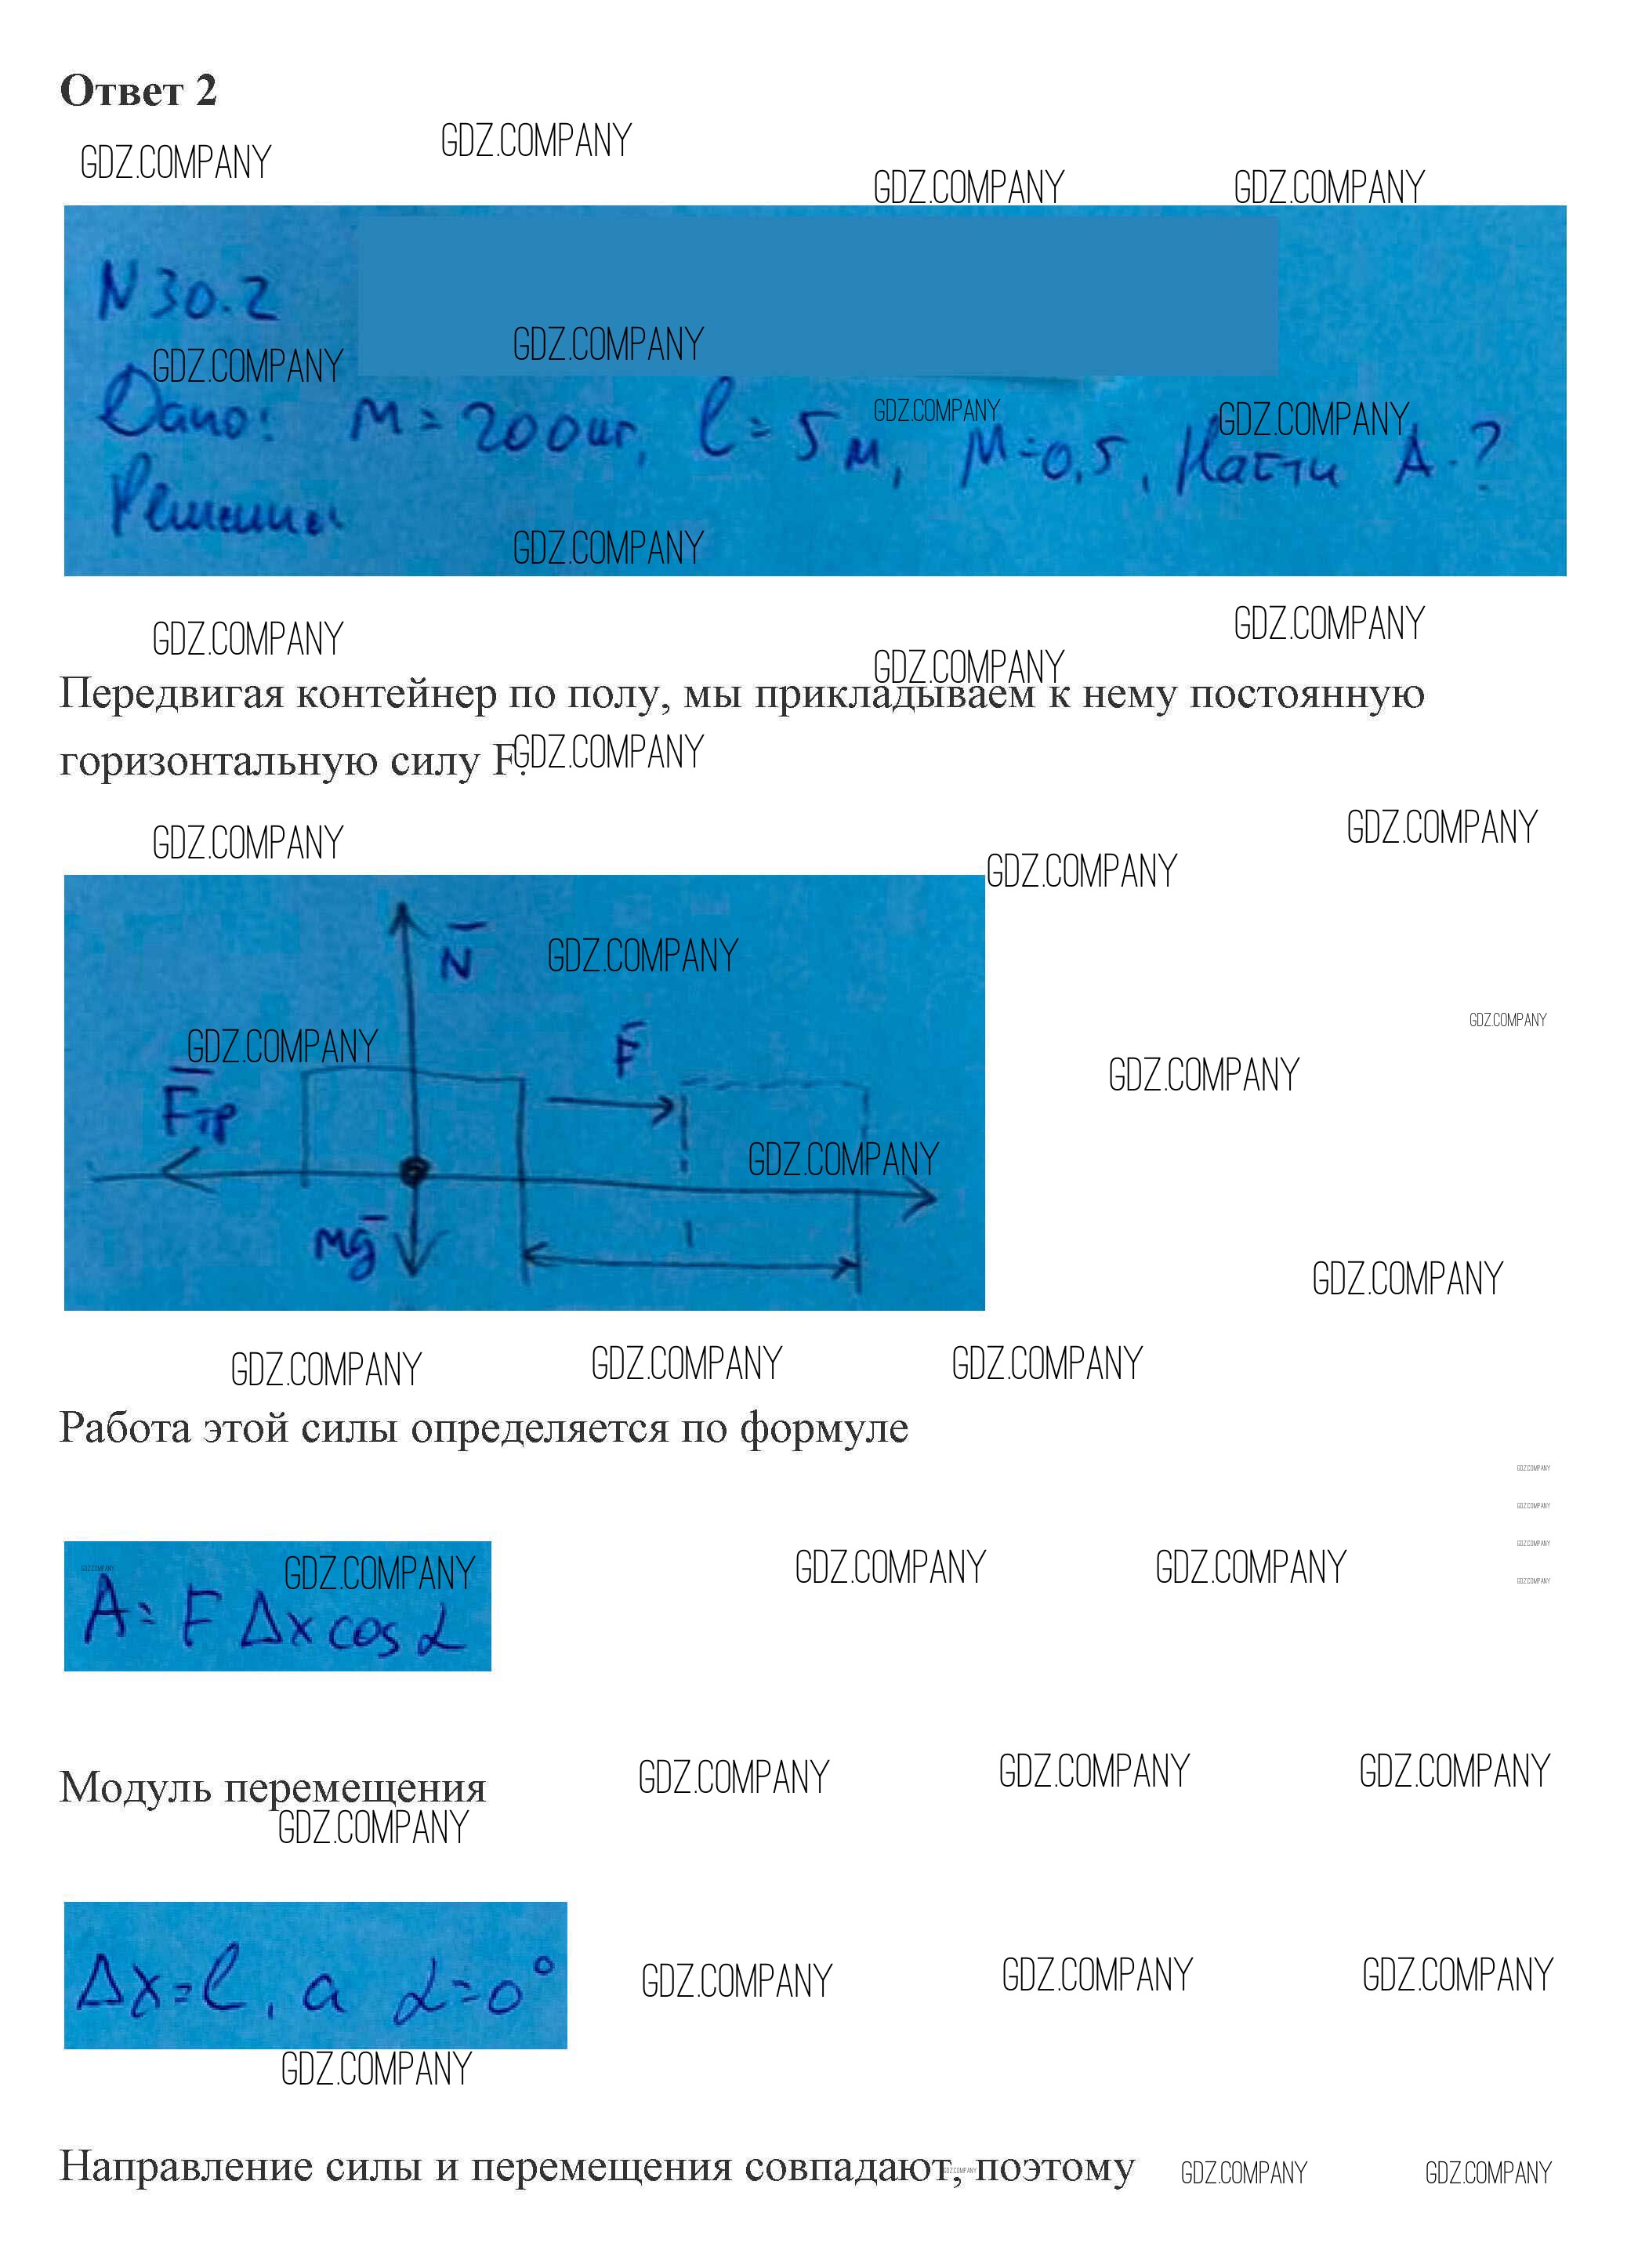 Ответ 2
GDZ.COMPANY
GDZ.COMPANY
GDZ.COMPANY GDZ.COMPANY
N 30.2
GDZ.COMPANY
GDZ.COMPANY
Дано: m = 200кг, l = 5м, μ=0,5, Найти A-?
GDZ.COMPANY GDZ.COMPANY
Решение
GDZ.COMPANY
GDZ.COMPANY
GDZ.COMPANY
GDZ.COMPANY
Передвигая контейнер по полу, мы прикладываем к нему постоянную
горизонтальную силу F.
GDZ.COMPANY
GDZ.COMPANY
GDZ.COMPANY
GDZ.COMPANY
N
GDZ.COMPANY
GDZ.COMPANY
GDZ.COMPANY
F
GDZ.COMPANY
Fтр
GDZ.COMPANY
mg
l
GDZ.COMPANY
GDZ.COMPANY GDZ.COMPANY GDZ.COMPANY
Работа этой силы определяется по формуле
GDZ.COMPANY
GDZ.COMPANY
GDZ.COMPANY
GDZ.COMPANY
GDZ.COMPANY
GDZ.COMPANY GDZ.COMPANY GDZ.COMPANY
A = F Δx cos α
Модуль перемещения
GDZ.COMPANY GDZ.COMPANY GDZ.COMPANY
GDZ.COMPANY
Δx = l, а α = 0°
GDZ.COMPANY GDZ.COMPANY GDZ.COMPANY
GDZ.COMPANY
Направление силы и перемещения совпадают, поэтому
GDZ.COMPANY GDZ.COMPANY GDZ.COMPANY